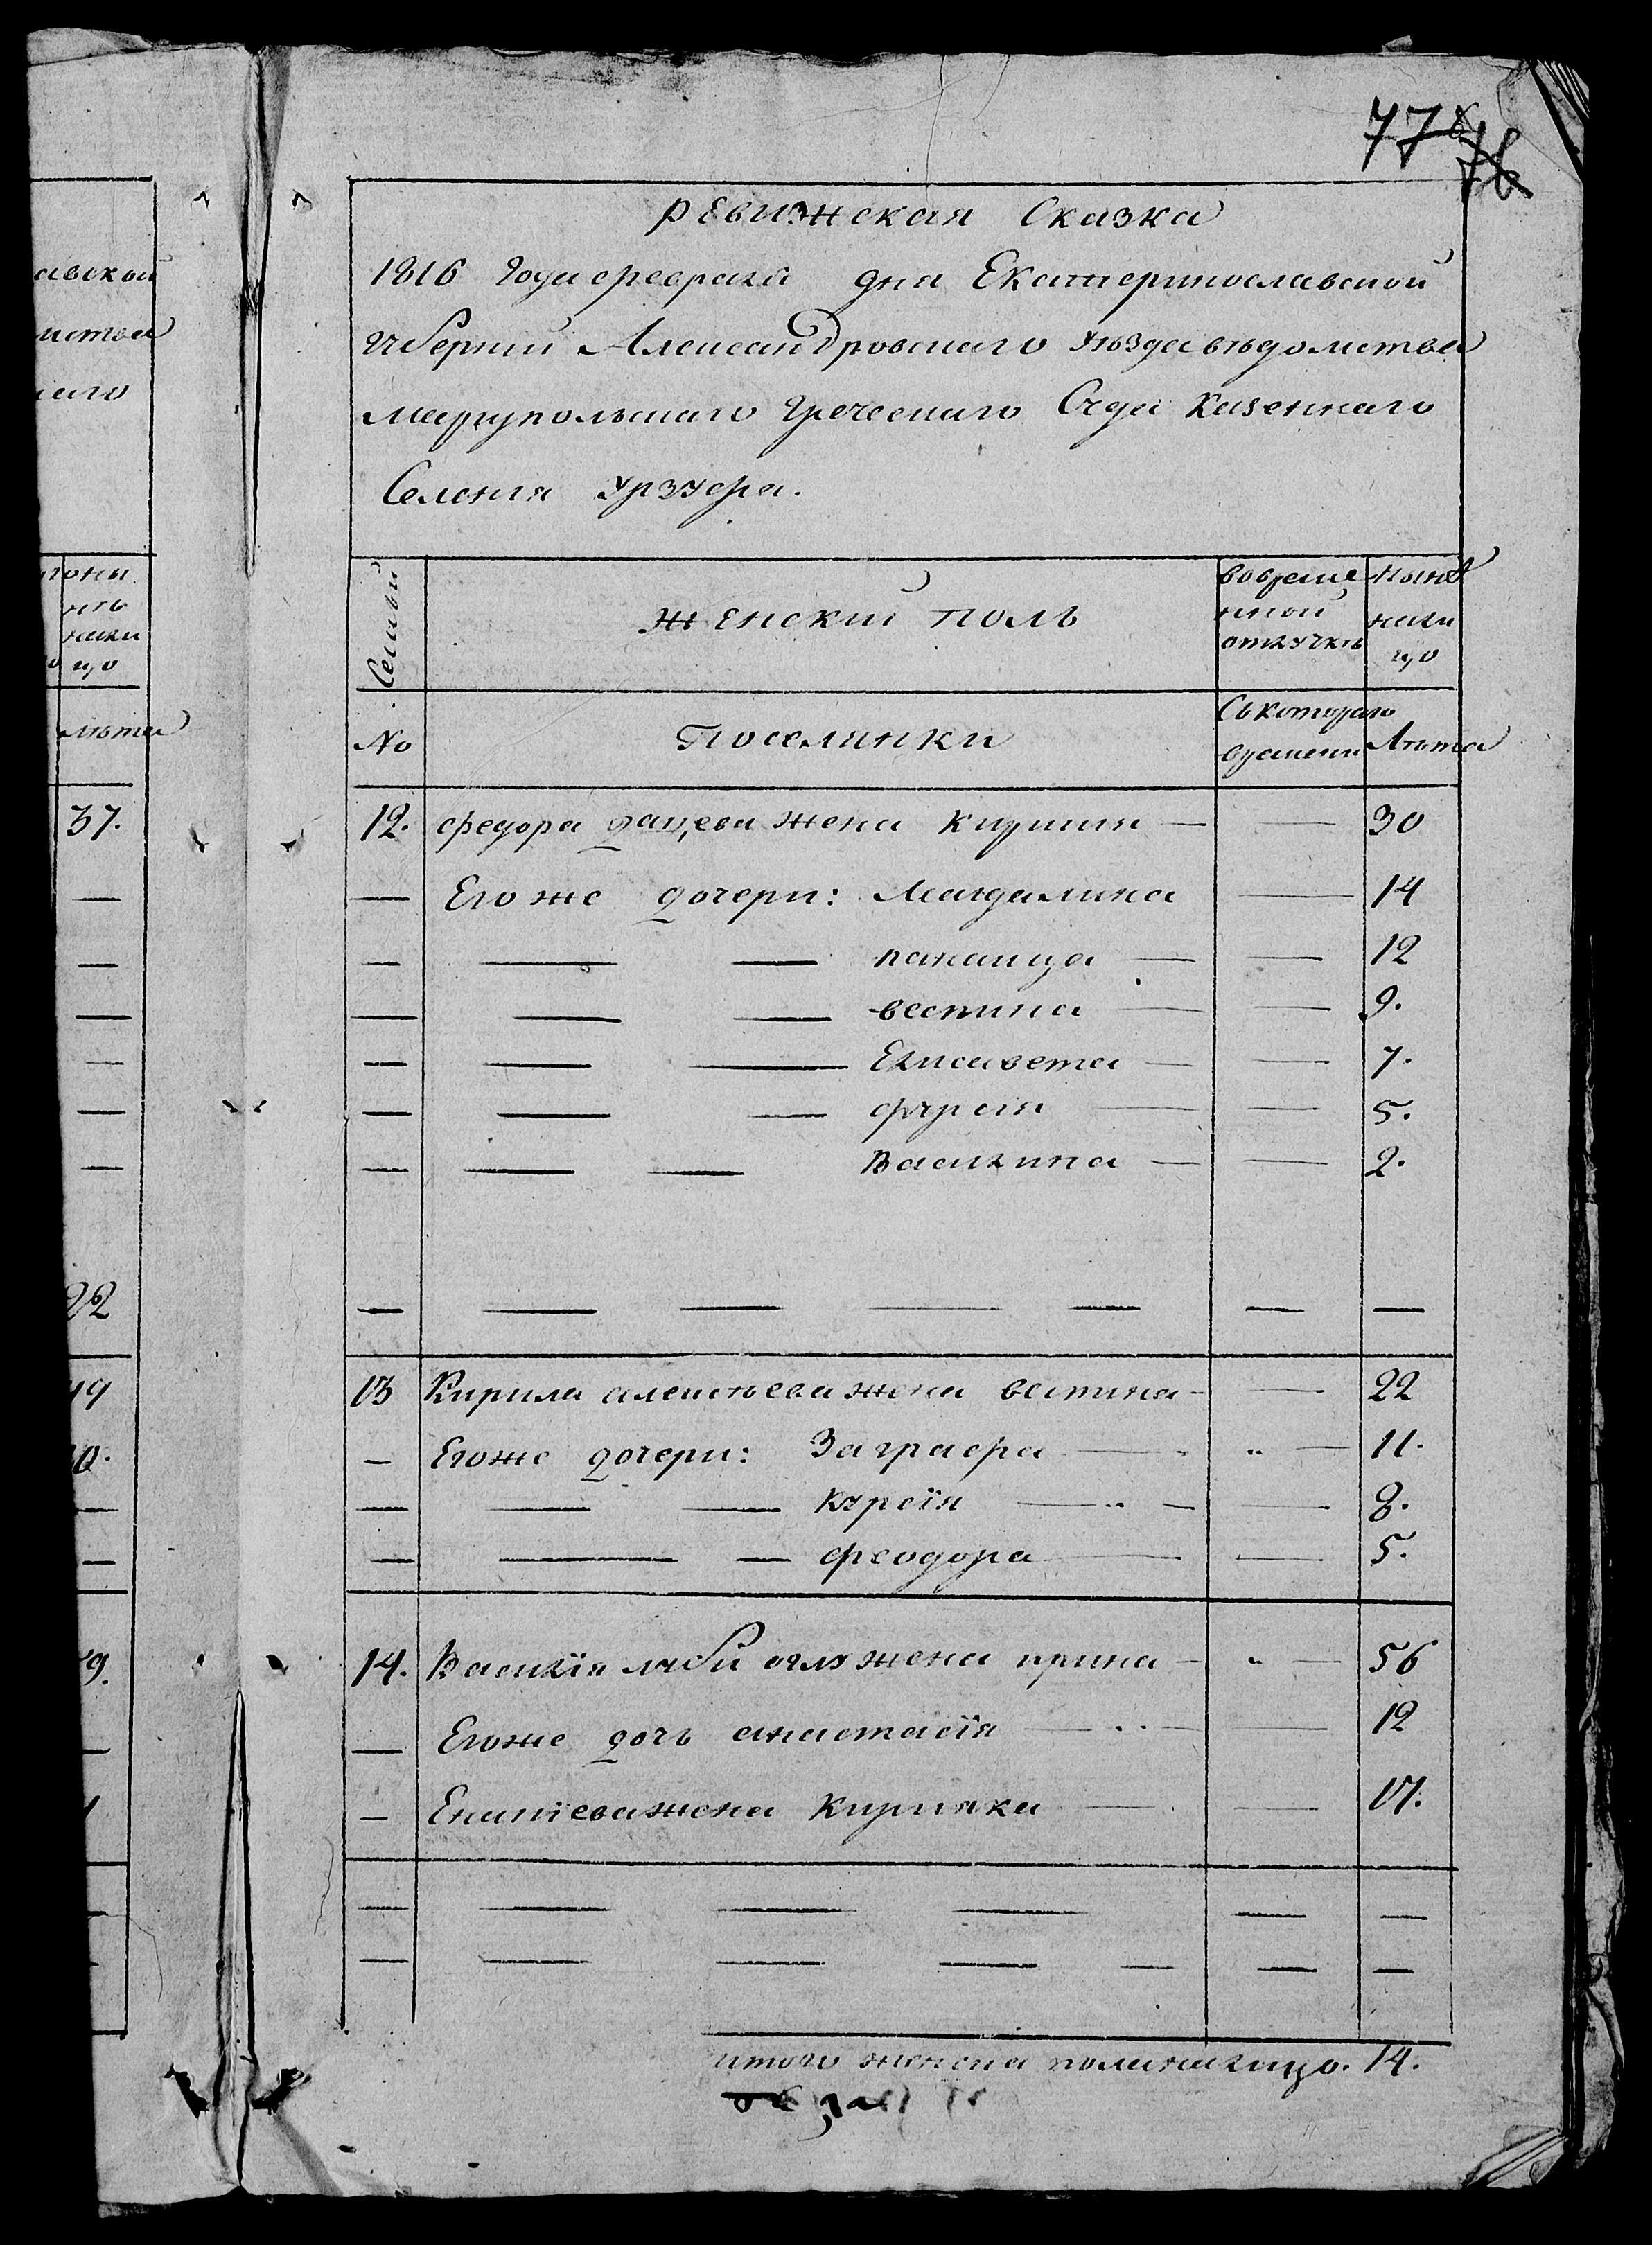 77 76
РЕвизжская Сказка
1816 Года февраля дня Екатеринославской
губернии Александровскаго уъзда вѣдомства
Мариупольскаго Греческаго Суда Казеннаго
Селения Урзуфа.
Семьи
женский поль
вовреме
нной
отлучкѣ
нынѣ
нали
цо
No
Поселянки
Съкотораго
времени
Лѣта
12. федора дацева жена Кирия — — 30
— Его же дочери: Магдалина — 14
— — — панаица — — 12
— — — вестина — — 9.
— — — Елисавета — — 7.
— — — фурсия — — 5.
— — — Василина — — 2.
— — — — — — —
13 Кирила алексѣева жена вестина — — 22
— Егоже дочери: Заграфа — „ — 11.
— — — Курсїя — „ — — 8.
— — — феодора — — 5.
14. Василїя оглу жена ирина — „ — 56
— Егоже дочь анастасїя — „ — — 12
— жена Кирияка — — 17.
— — — — — —
— — — — — — —
итого женска пола налицо. 14.
авской
мства
каго
ны
нѣ
нали
цо
лѣта
37.
—
—
—
—
—
—
22
49
—
—
9.
—
—